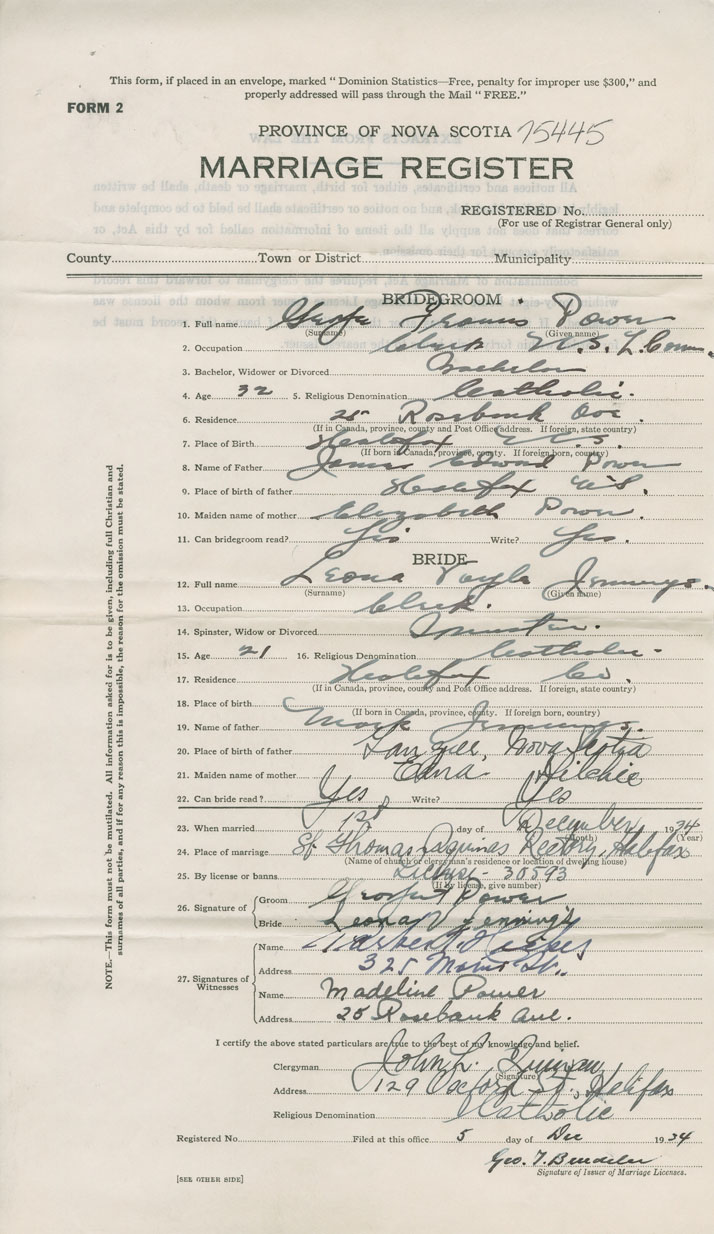 This form, if placed in an envelope, marked " Dominion Statistics—Free, penalty for improper use $300," and
properly addressed will pass through the Mail " FREE."
FORM 2
PROVINCE OF NOVA SCOTIA 75445
MARRIAGE REGISTER
REGISTERED No.
(For use of Registrar General only)
County Town or District Municipality
BRIDEGROOM
1. Full name George Francis Power
(Surname) (Given name)
2. Occupation Clerk N.S. L. Comm.
3. Bachelor, Widower or Divorced Bachelor
4. Age 32 5. Religious Denomination Catholic.
6. Residence 25 Rosebank Ave.
(If in Canada, province, county and Post Office address. If foreign, state country)
7. Place of Birth Halifax N.S.
(If born in Canada, province, county. If foreign born, county)
8. Name of Father James Edward Power
9. Place of birth of father Halifax N.S.
10. Maiden name of mother Elizabeth Power.
11. Can bridegroom read? Yes Write? Yes.
BRIDE
12. Full name Leona Jennings.
(Surname) (Given name)
13. Occupation Clerk.
14. Spinster, Widow or Divorced Spinster.
15. Age 21 16. Religious Denomination Catholic.
17. Residence Halifax Co.
(If in Canada, province, county and Post Office address. If foreign, state country)
18. Place of birth
(If born in Canada, province, county. If foreign born, country)
19. Name of father Mark Jennings.
20. Place of birth of father Nova Scotia
21. Maiden name of mother Edna Ritchie
22. Can bride read? Yes Write? Yes
23. When married 12th day of December 1934
(Month) (Year)
24. Place of marriage St Thomas Aquinas Rectory, Halifax
(Name of church or clergyman's residence or location of dwelling house)
25. By license or banns License - 30593
(If by license, give number)
26. Signature of
Groom George F Power
Bride Leona V Jennings
27. Signatures of Witnesses
Name
Address 325 St.,
Name Madeline Power
Address 25 Rosebank Ave.
I certify the above stated particulars are true to the best of my knowledge and belief.
Clergyman John L. Quinan
(Signature)
Address 129 Oxford St, Halifax
Religious Denomination Catholic
Registered No. Filed at this office 5 day of Dec 1934
Geo. T.
Signature of Issuer of Marriage Licenses.
[SEE OTHER SIDE]
NOTE.—This form must not be mutilated. All information asked for is to be given, including full Christian and
surnames of all parties, and if for any reason this is impossible, the reason for the omission must be stated.